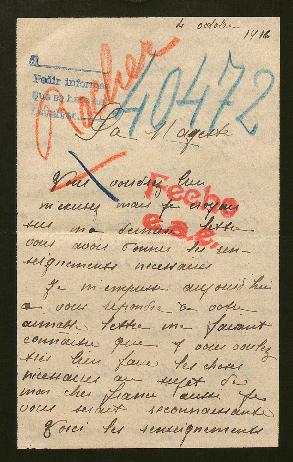 4 octobre 1916
Pedir informes
40472
Sa Majesté
Vous voudrez bien
m'excuser mais je croyais
sur ma dernière lettre
vous avoir donné les ren-
seignements nécessaires
Fecho
Je m'empresse aujourd'hui
a vous repondre a votre
aimable lettre me faisant
connaitre que vous voulez
bien faire les choses
necessaires au sujet de
mon cher fiancé aussi je
vous serait reconnaissante
Voici les renseignements